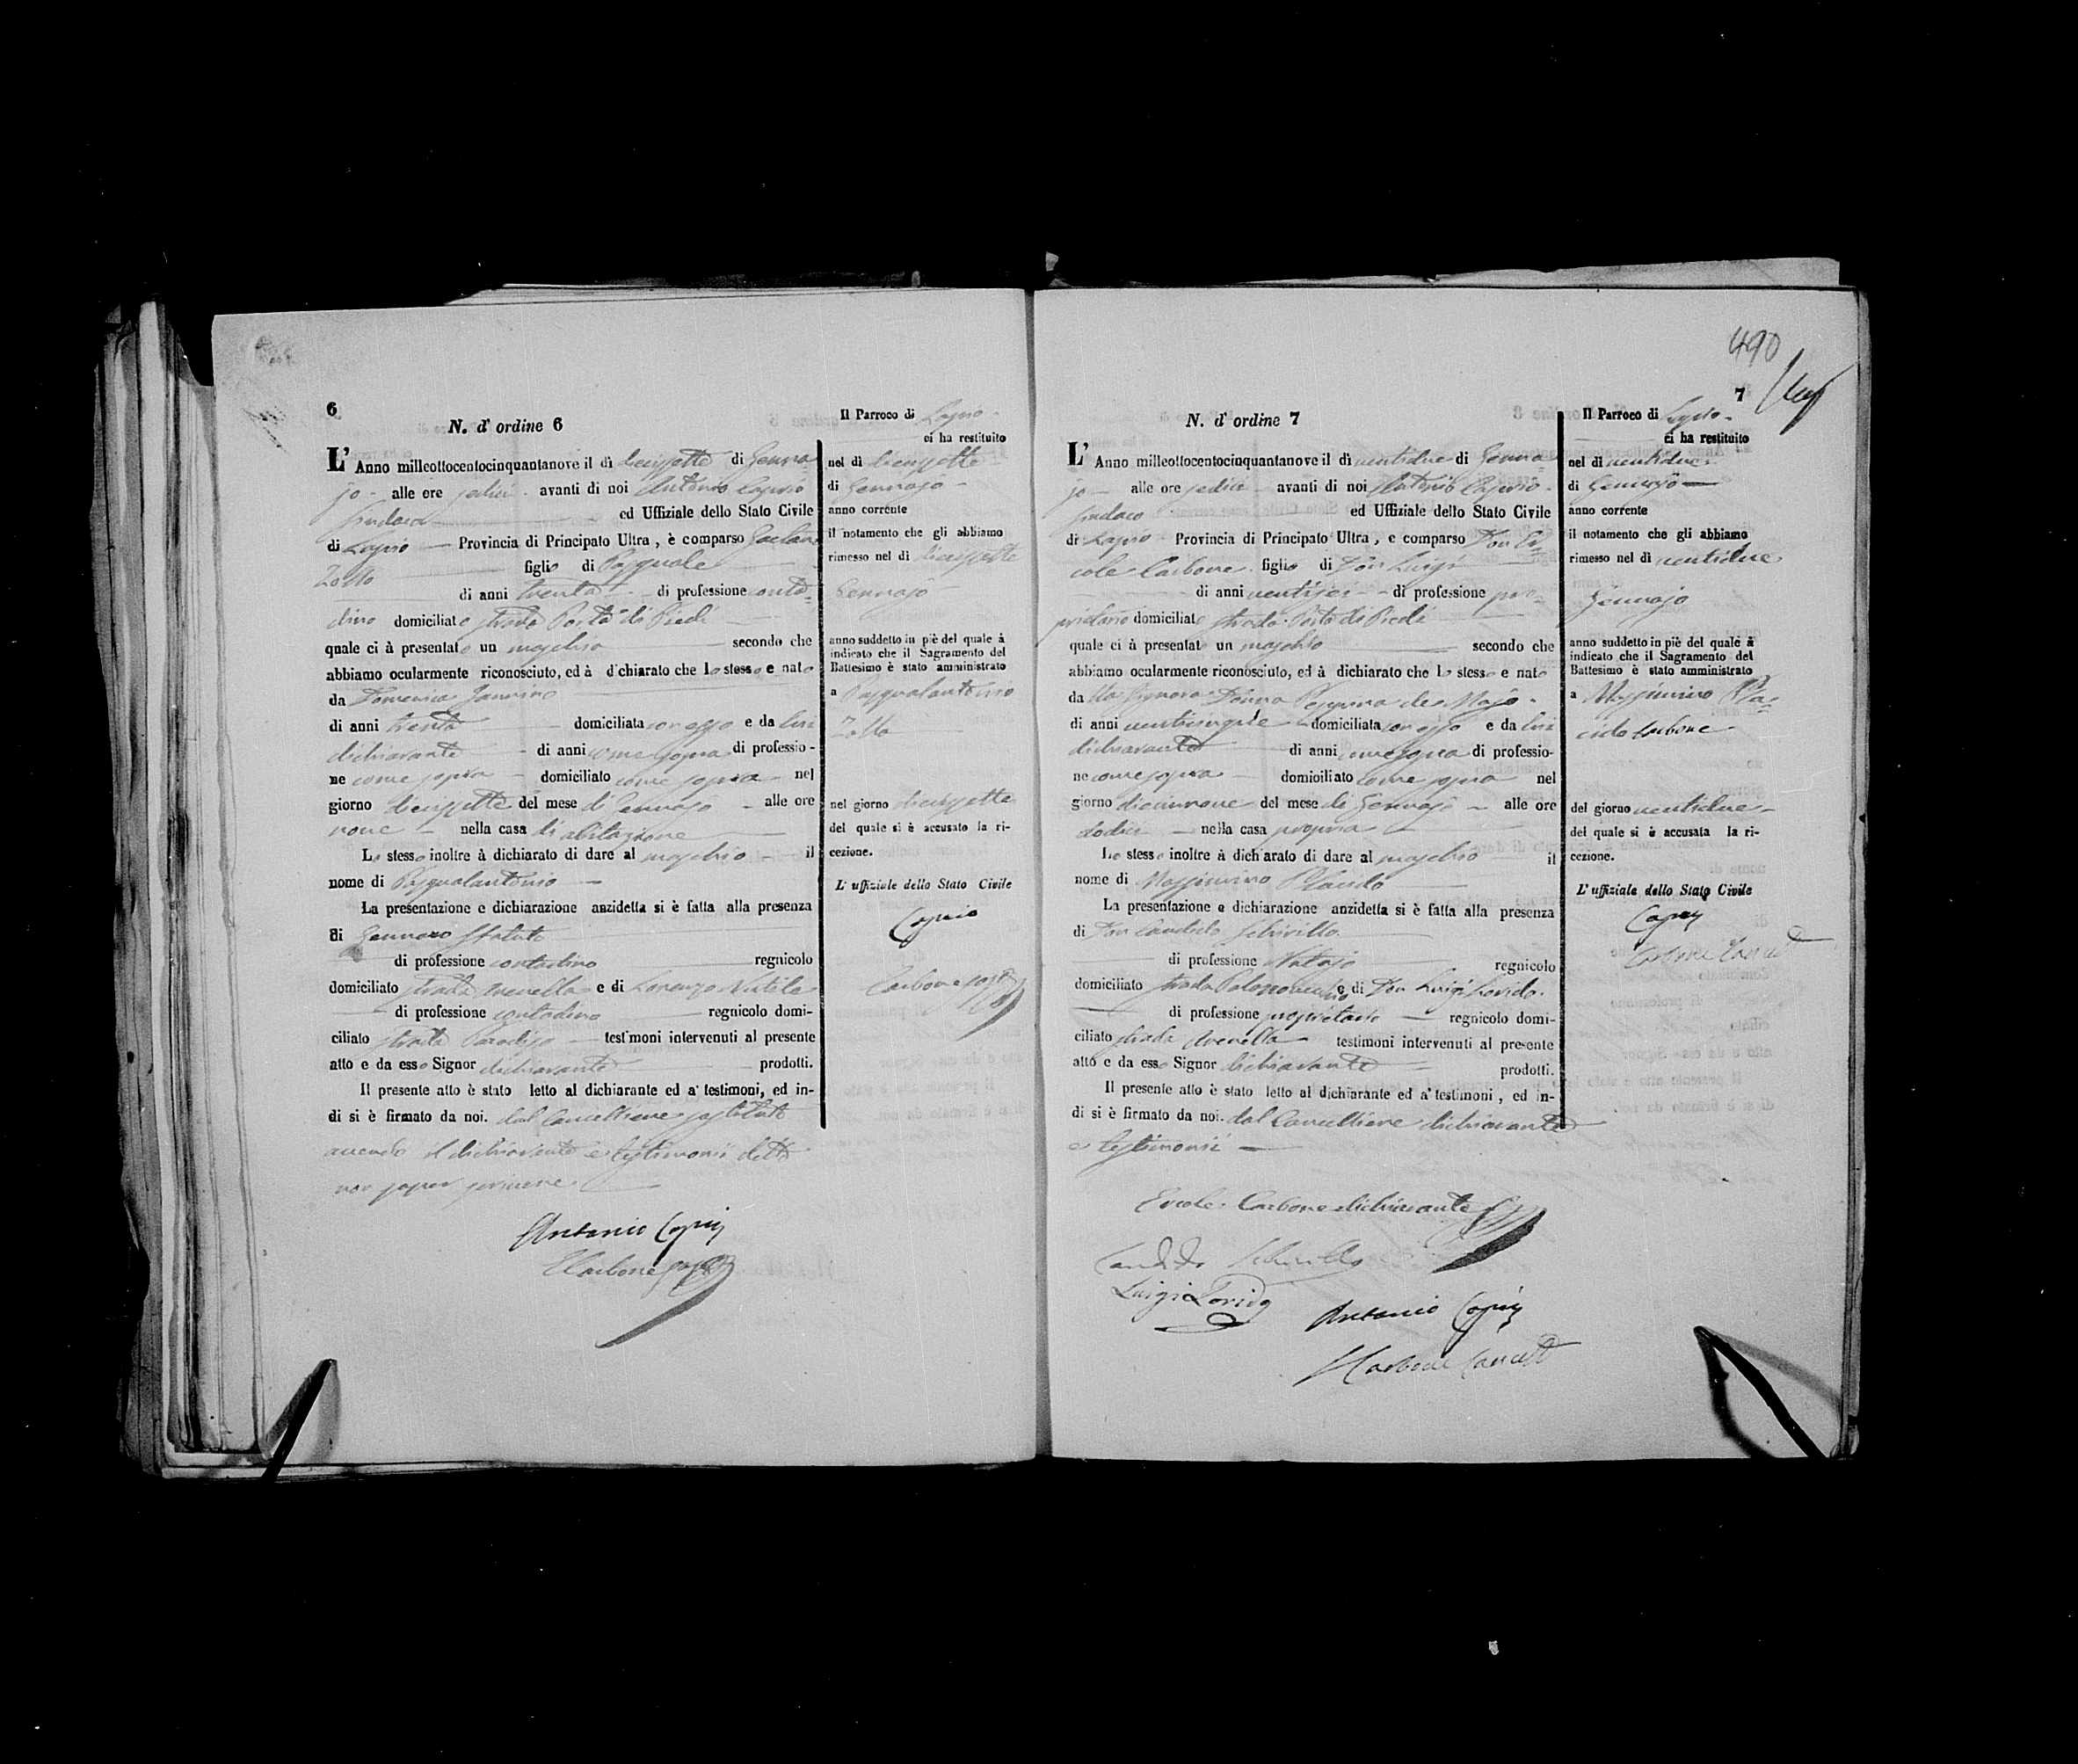 6
N. d' ordine 6
L' Anno milleottocentocinquantanove il dì diecissette di Genna=
jo - alle ore sedici - avanti di noi Antonio Caprio
Sindaco ed Uffiziale dello Stato Civile
di Lapio - Provincia di Principato Ultra, è comparso Gaetano
Zollo figlio di Pasquale
di anni trenta - di professione conta=
dino domiciliato strada Porta di Piedi
quale ci à presentato un maschio secondo che
abbiamo ocularmente riconosciuto, ed à d'chiarato che Lo stesso e nato
da Domenica Jannino
di anni trenta domiciliata con esso e da lui
dichiarante - di anni come sopra di professio-
ne come sopra - domiciliato come sopra - nel
giorno diecissette del mese di Gennajo - alle ore
nove - nella casa di abitazione
Lo stesso inoltre à dichiarato di dare al maschio - il
nome di Pasqualantonio
La presentazione e dichiarazione anzidetta si è fatta alla presenza
di Gennaro
di professione contadino regnicolo
domiciliato strada e di Lorenzo
di professione contadino regnicolo domi-
ciliato strada Paradiso testimoni intervenuti al presente
atto e da esso Signor dichiarante prodotti.
Il presente atto è stato letto al dichiarante ed a' testimoni, ed in-
di si è firmato da noi. dal Cancelliere sostituto
avendo il dichiarante e testimonii detto
non saper scrivere.
Antonio Caprio
Carbone
Il Parroco di Lapio -
ci ha restituito
nel dì diecissette
di Gennajo -
anno corrente
il notamento che gli abbiamo
rimesso nel dì diecissette
Gennajo
anno suddetto in piè del quale à
indicato che il Sagramento del
Battesimo è stato amministrato
a Pasqualantonio
Zollo
nel giorno diecissette
del quale si è accusato la ri-
cezione.
L' uffiziale dello Stato Civile
Caprio
Carbone
490
7
N. d' ordine 7
L' Anno milleottocentocinquantanove il dì ventidue di Genna=
jo - alle ore sedici - avanti di noi Antonio Caprio -
Sindaco ed Uffiziale dello Stato Civile
di Lapio - Provincia di Principato Ultra, e comparso Don Er=
cole Carbone figlio di Don Luigi
di anni ventisei - di professione pro=
prietario domiciliato strada Porta di Piedi
quale ci à presentato un maschio secondo che
abbiamo ocularmente riconosciuto, ed à dichiarato che Lo stesso e nato
da Donna Peppina de Majo -
di anni domiciliata con esso e da lui
dichiarante di anni come sopra di professio-
ne come sopra - domioiliato come sopra nel
giorno diecinnove del mese di Gennajo - alle ore
dodici - nella casa propria
Lo stesso inoltre à dich'arato di dare al maschio il
nome di Massimino Placido
La presentazione e dichiarazione anzidetta si è fatta alla presenza
di Don Candido Schirillo
di professione Notajo regnicolo
domiciliato strada e di Don Luigi Lorida.
di professione proprietario - regnicolo domi-
ciliato strada testimoni intervenuti al presente
atto e da esso Signor dichiarante prodotti.
Il presente atto è stato letto al dichiarante ed a' testimoni, ed in-
di si è firmato da noi. dal Cancelliere dichiarante
e testimonii -
Ercole Carbone dichiarante
Candido Schirillo
Luigi Lorida
Antonio Caprio
Carbone
Il Parroco di Lapio -
ci ha restituito
nel dì ventidue
di Gennajo
anno corrente
il notamento che gli abbiamo
rimesso nel dì ventidue
Gennajo
anno suddetto in piè del quale à
indicato che il Sagramento del
Battesimo è stato amministrato
a Massimino Pla=
cido Carbone
del giorno ventidue -
del quale si è accusata la ri-
cezione.
L' uffiziale dello Stato Civile
Caprio
Carbone